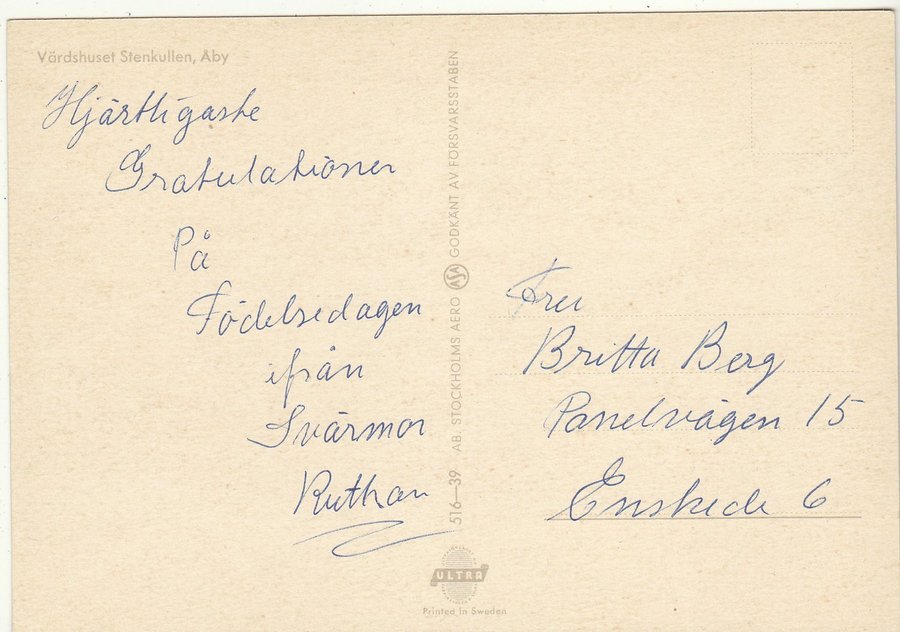 Värdshuset Stenkullen, Åby
Hjärtligaste
Gratulationer
På
Födelsedagen
ifrån
Svärmor
Ruthan
516—39 AB. STOCKHOLMS AERO ASA GODKÄNT AV FÖRSVARSSTABEN
Fru
Britta Berg
Panelvägen 15
Enskede 6
ULTRA
Printed in Sweden